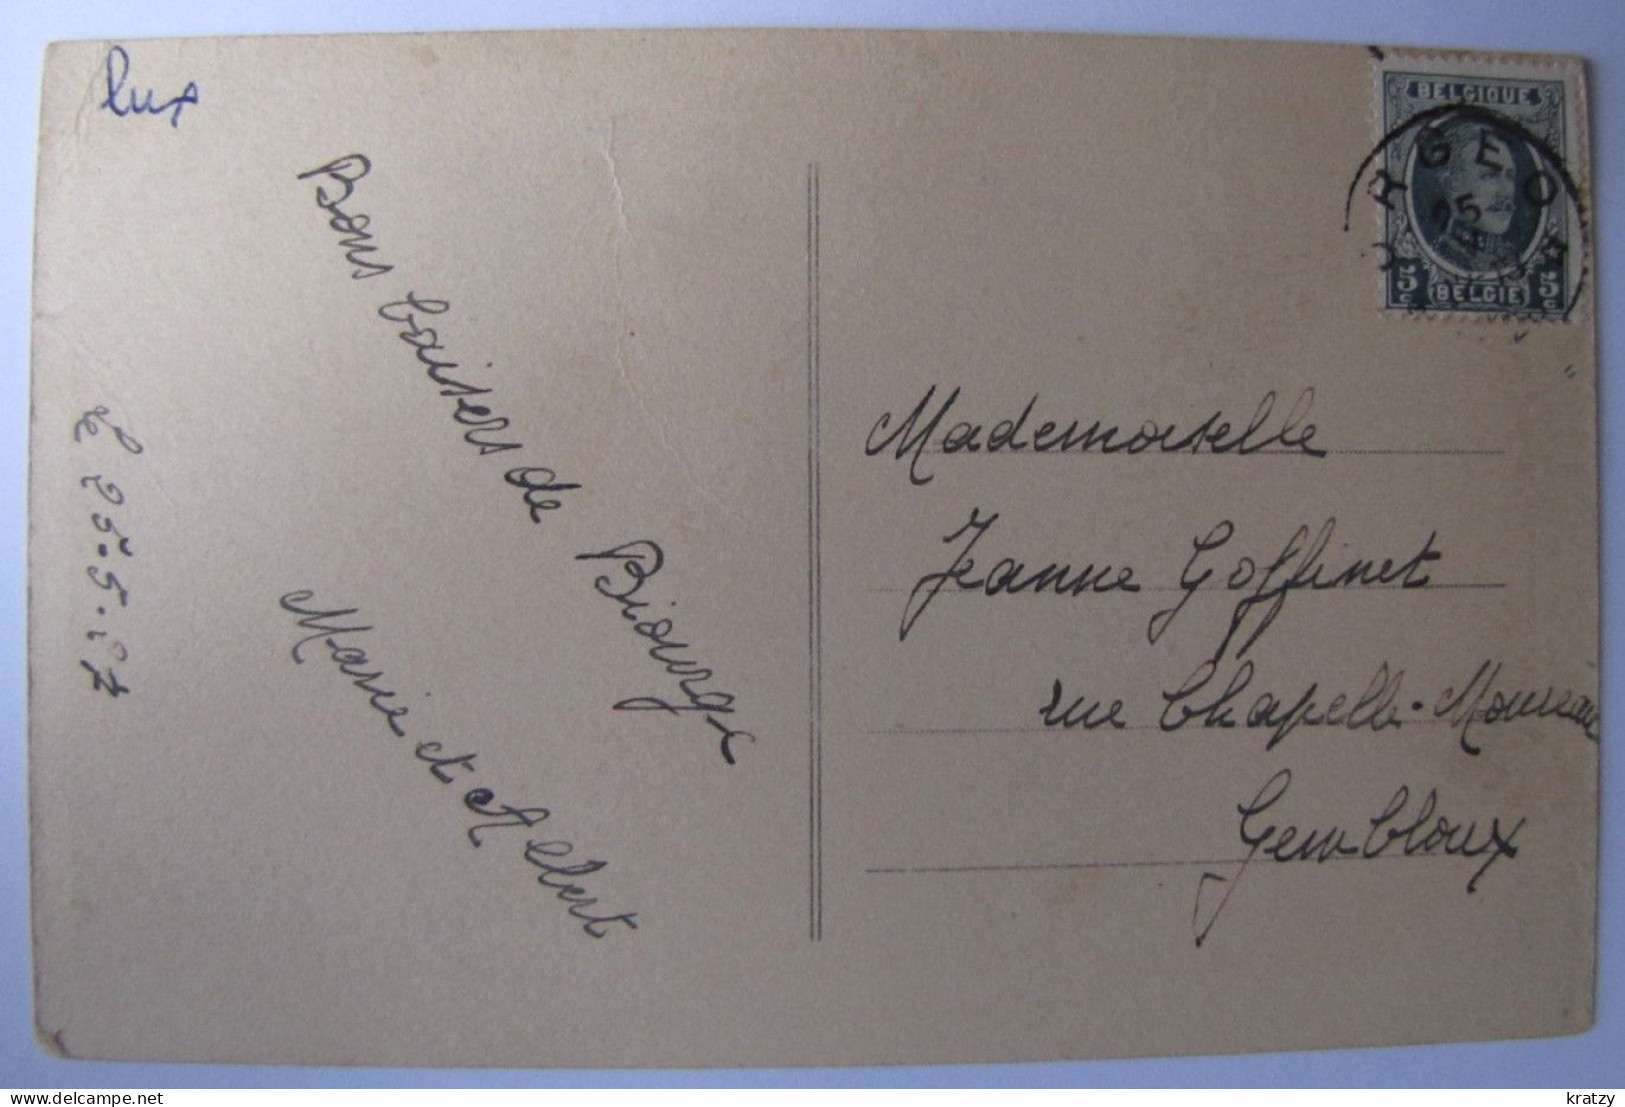 lux
BELGIQUE
5c 5c
BELGIE
25
Bons baisers de Biourge
Marie et Albert
le 25-5-27
Mademoiselle
Jeanne Goffinet
rue Chapelle-Mourseau
Gembloux
delcampe.net
kratzy